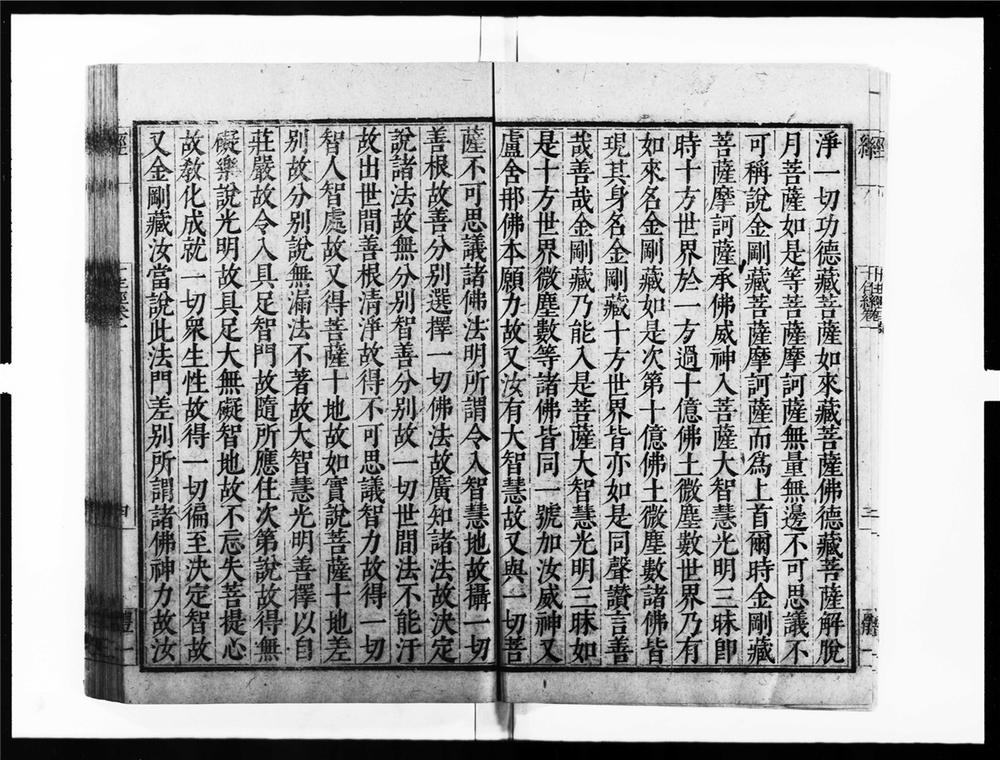 淨一切功德藏菩薩如來藏菩薩佛德藏菩薩解脫
月菩薩如是等菩薩摩訶薩無量無邊不可思議不
可稱說金剛藏菩薩摩訶薩而為上首爾時金剛藏
菩薩摩訶薩承佛威神入菩薩大智慧光明三昧即
時十方世界於一方過十億佛土微塵數世界乃有
如來名金剛藏如是次第十億佛土微塵數諸佛皆
現其身名金剛藏十方世界皆亦如是同聲讚言善
哉善哉金剛藏乃能入是菩薩大智慧光明三昧如
是十方世界微塵數等諸佛皆同一號加汝威神又
盧舍那佛本願力故又汝有大智慧故又與一切菩
薩不可思議諸佛法明所謂令入智慧地故攝一切
善根故善分別選擇一切佛法故廣知諸法故決定
說諸法故無分別智善分別故一切世間法不能汙
故出世間善根清淨故得不可思議智力故得一切
智人智處故又得菩薩十地故如實說菩薩十地差
別故分別說無漏法不著故大智慧光明善擇以自
莊嚴故令入具足智門故隨所應住次第說故得無
礙樂說光明故具足大無礙智地故不忘失菩提心
故教化成就一切眾生性故得一切徧至決定智故
又金剛藏汝當說此法門差別所謂諸佛神力故汝